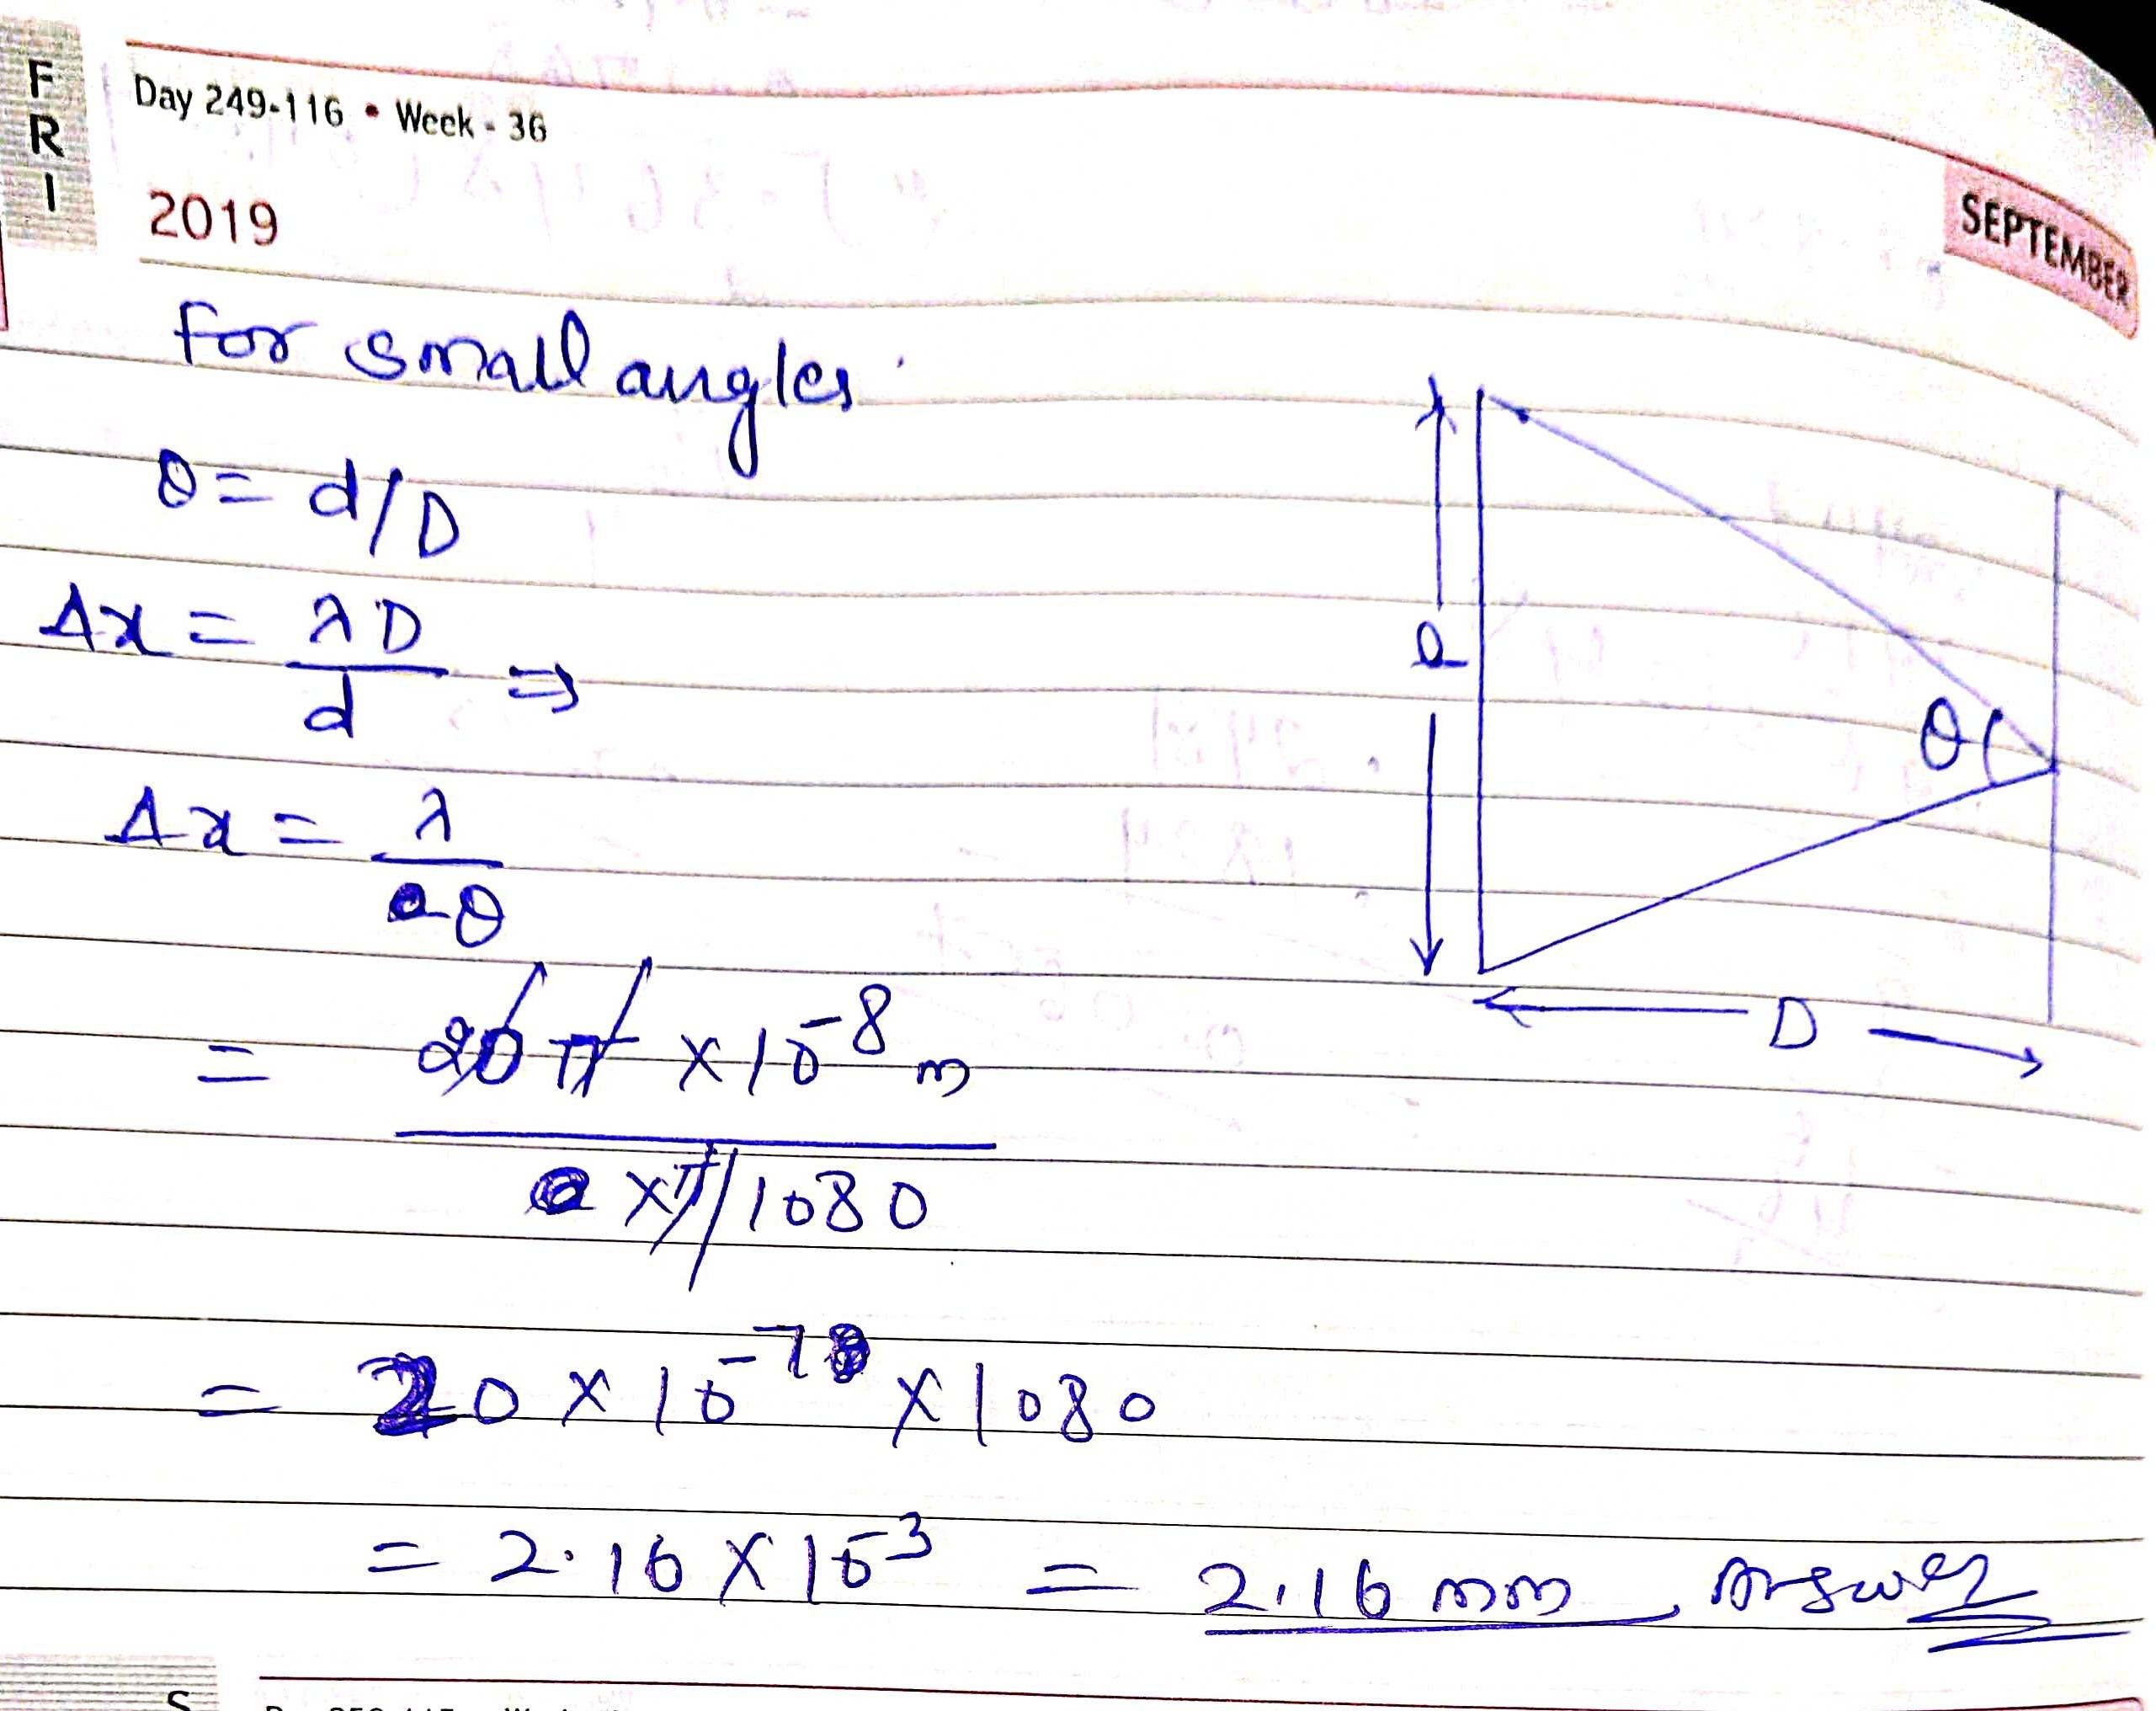 FRI
Day 249-116 • Week - 36
2019
SEPTEMBER
For small angles
θ = d/D
Δx = λD / d ⇒
Δx = λ / 2θ
d
θ
D
= 20π × 10⁻⁸ m / 2 × π/1080
= 20 × 10⁻⁷ × 1080
= 2.16 × 10⁻³ = 2.16 mm Answer
S